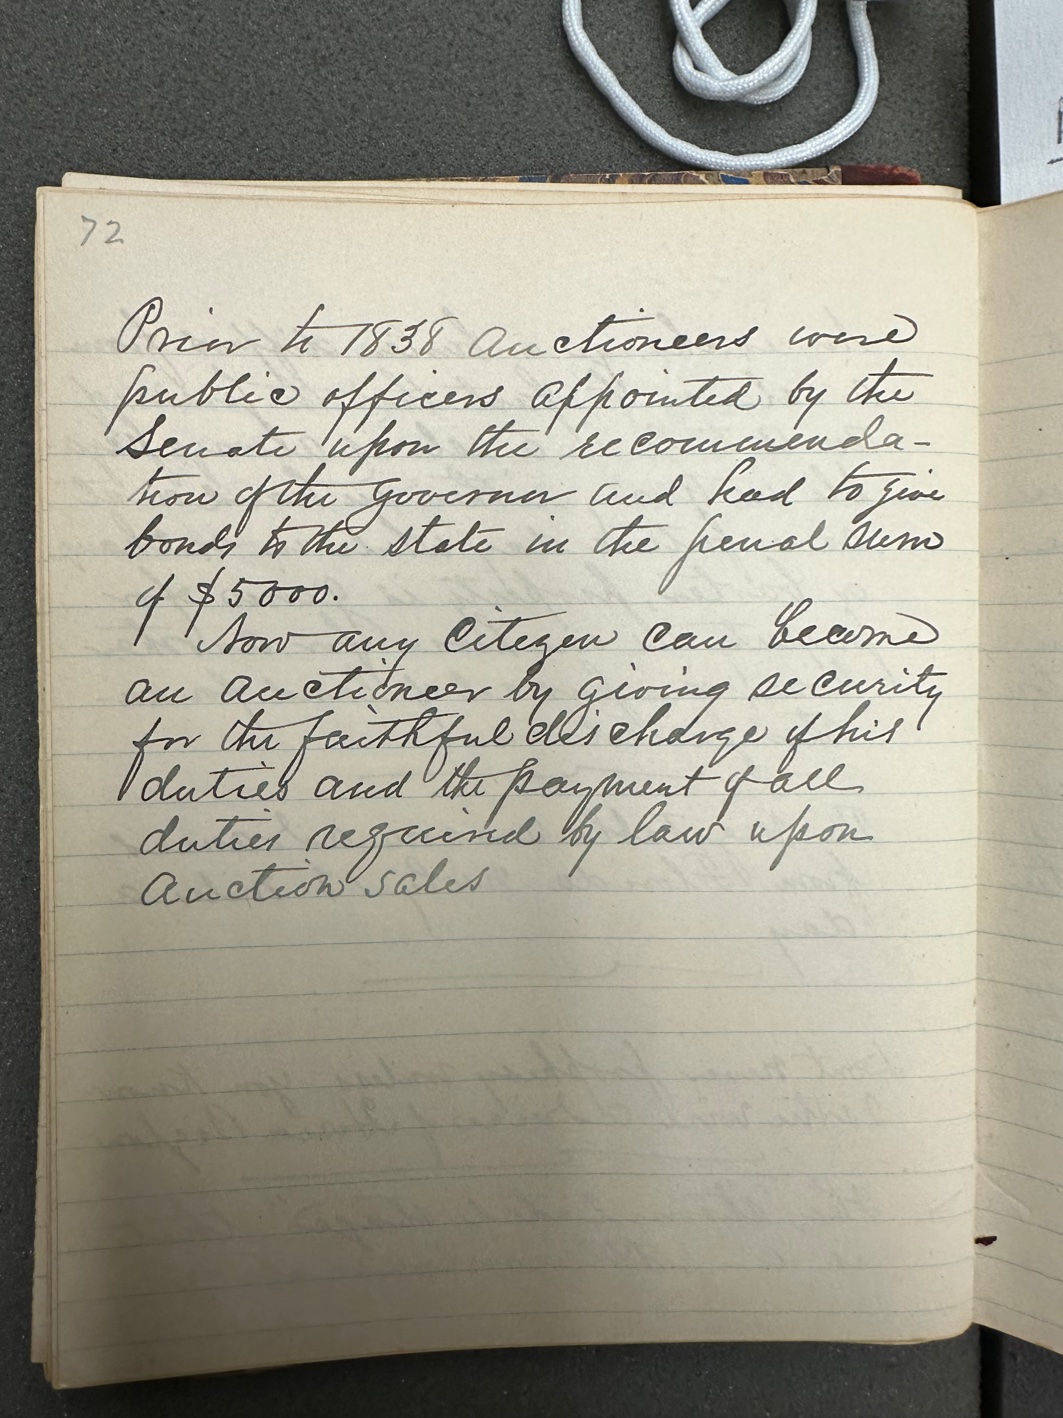 72
Prior to 1838 Auctioneers were
public officers appointed by the
Senate upon the recommenda-
tion of the Governor and had to give
bonds to the state in the penal sum
of $5000.
Now any Citizen can become
an Auctioneer by giving security
for the faithful discharge of his
duties and the payment of all
duties required by law upon
Auction sales